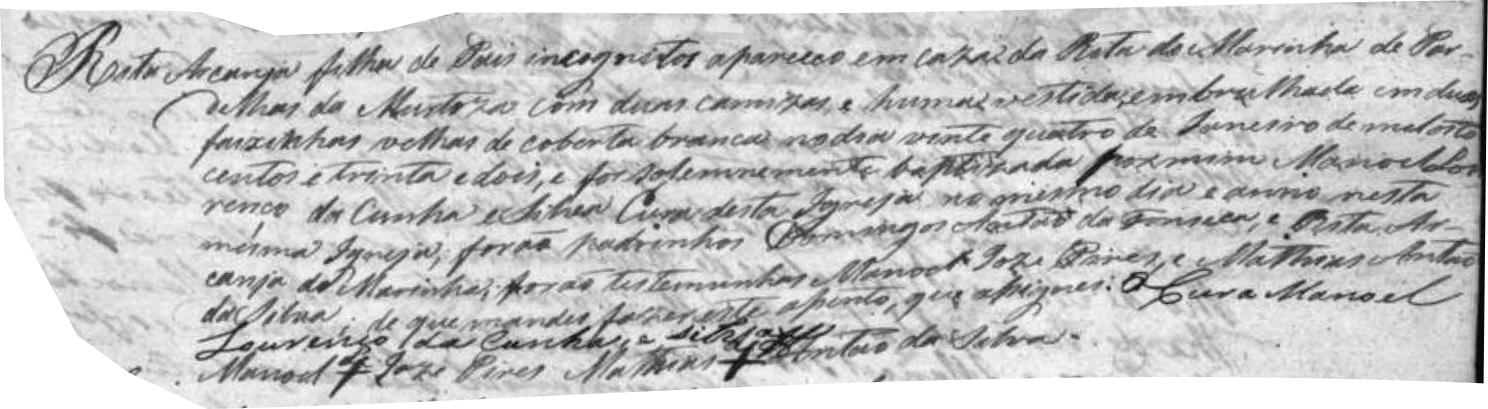 Rita Arcanja filha de Pais incognetos apareceo em caza da Rita do Marinha de Par-
delhas da Murtoza com duas camizas, e huma vestida, embrulhada em duas
faixinhas velhas de coberta branca no dia vinte quatro de Janeiro de mil oito
centos e trinta e dois, e for solemnemente baptizada por mim Manoel Lou
renco da Cunha e Silva Cura desta Igreja no mesmo dia e anno nesta
mesma Igreja, forão padrinhos Domingos Antão da Fonseca, e Rita Ar-
canja do Marinha; forão testemunhas Manoel Joze Pires, e Mathias Antão
da Silva: de que mandei fazer este aSento, que aSignei. O Cura Manoel
Lourenço da Cunha, e Silva
Manoel Joze Pires Mathias Antão da Silva.